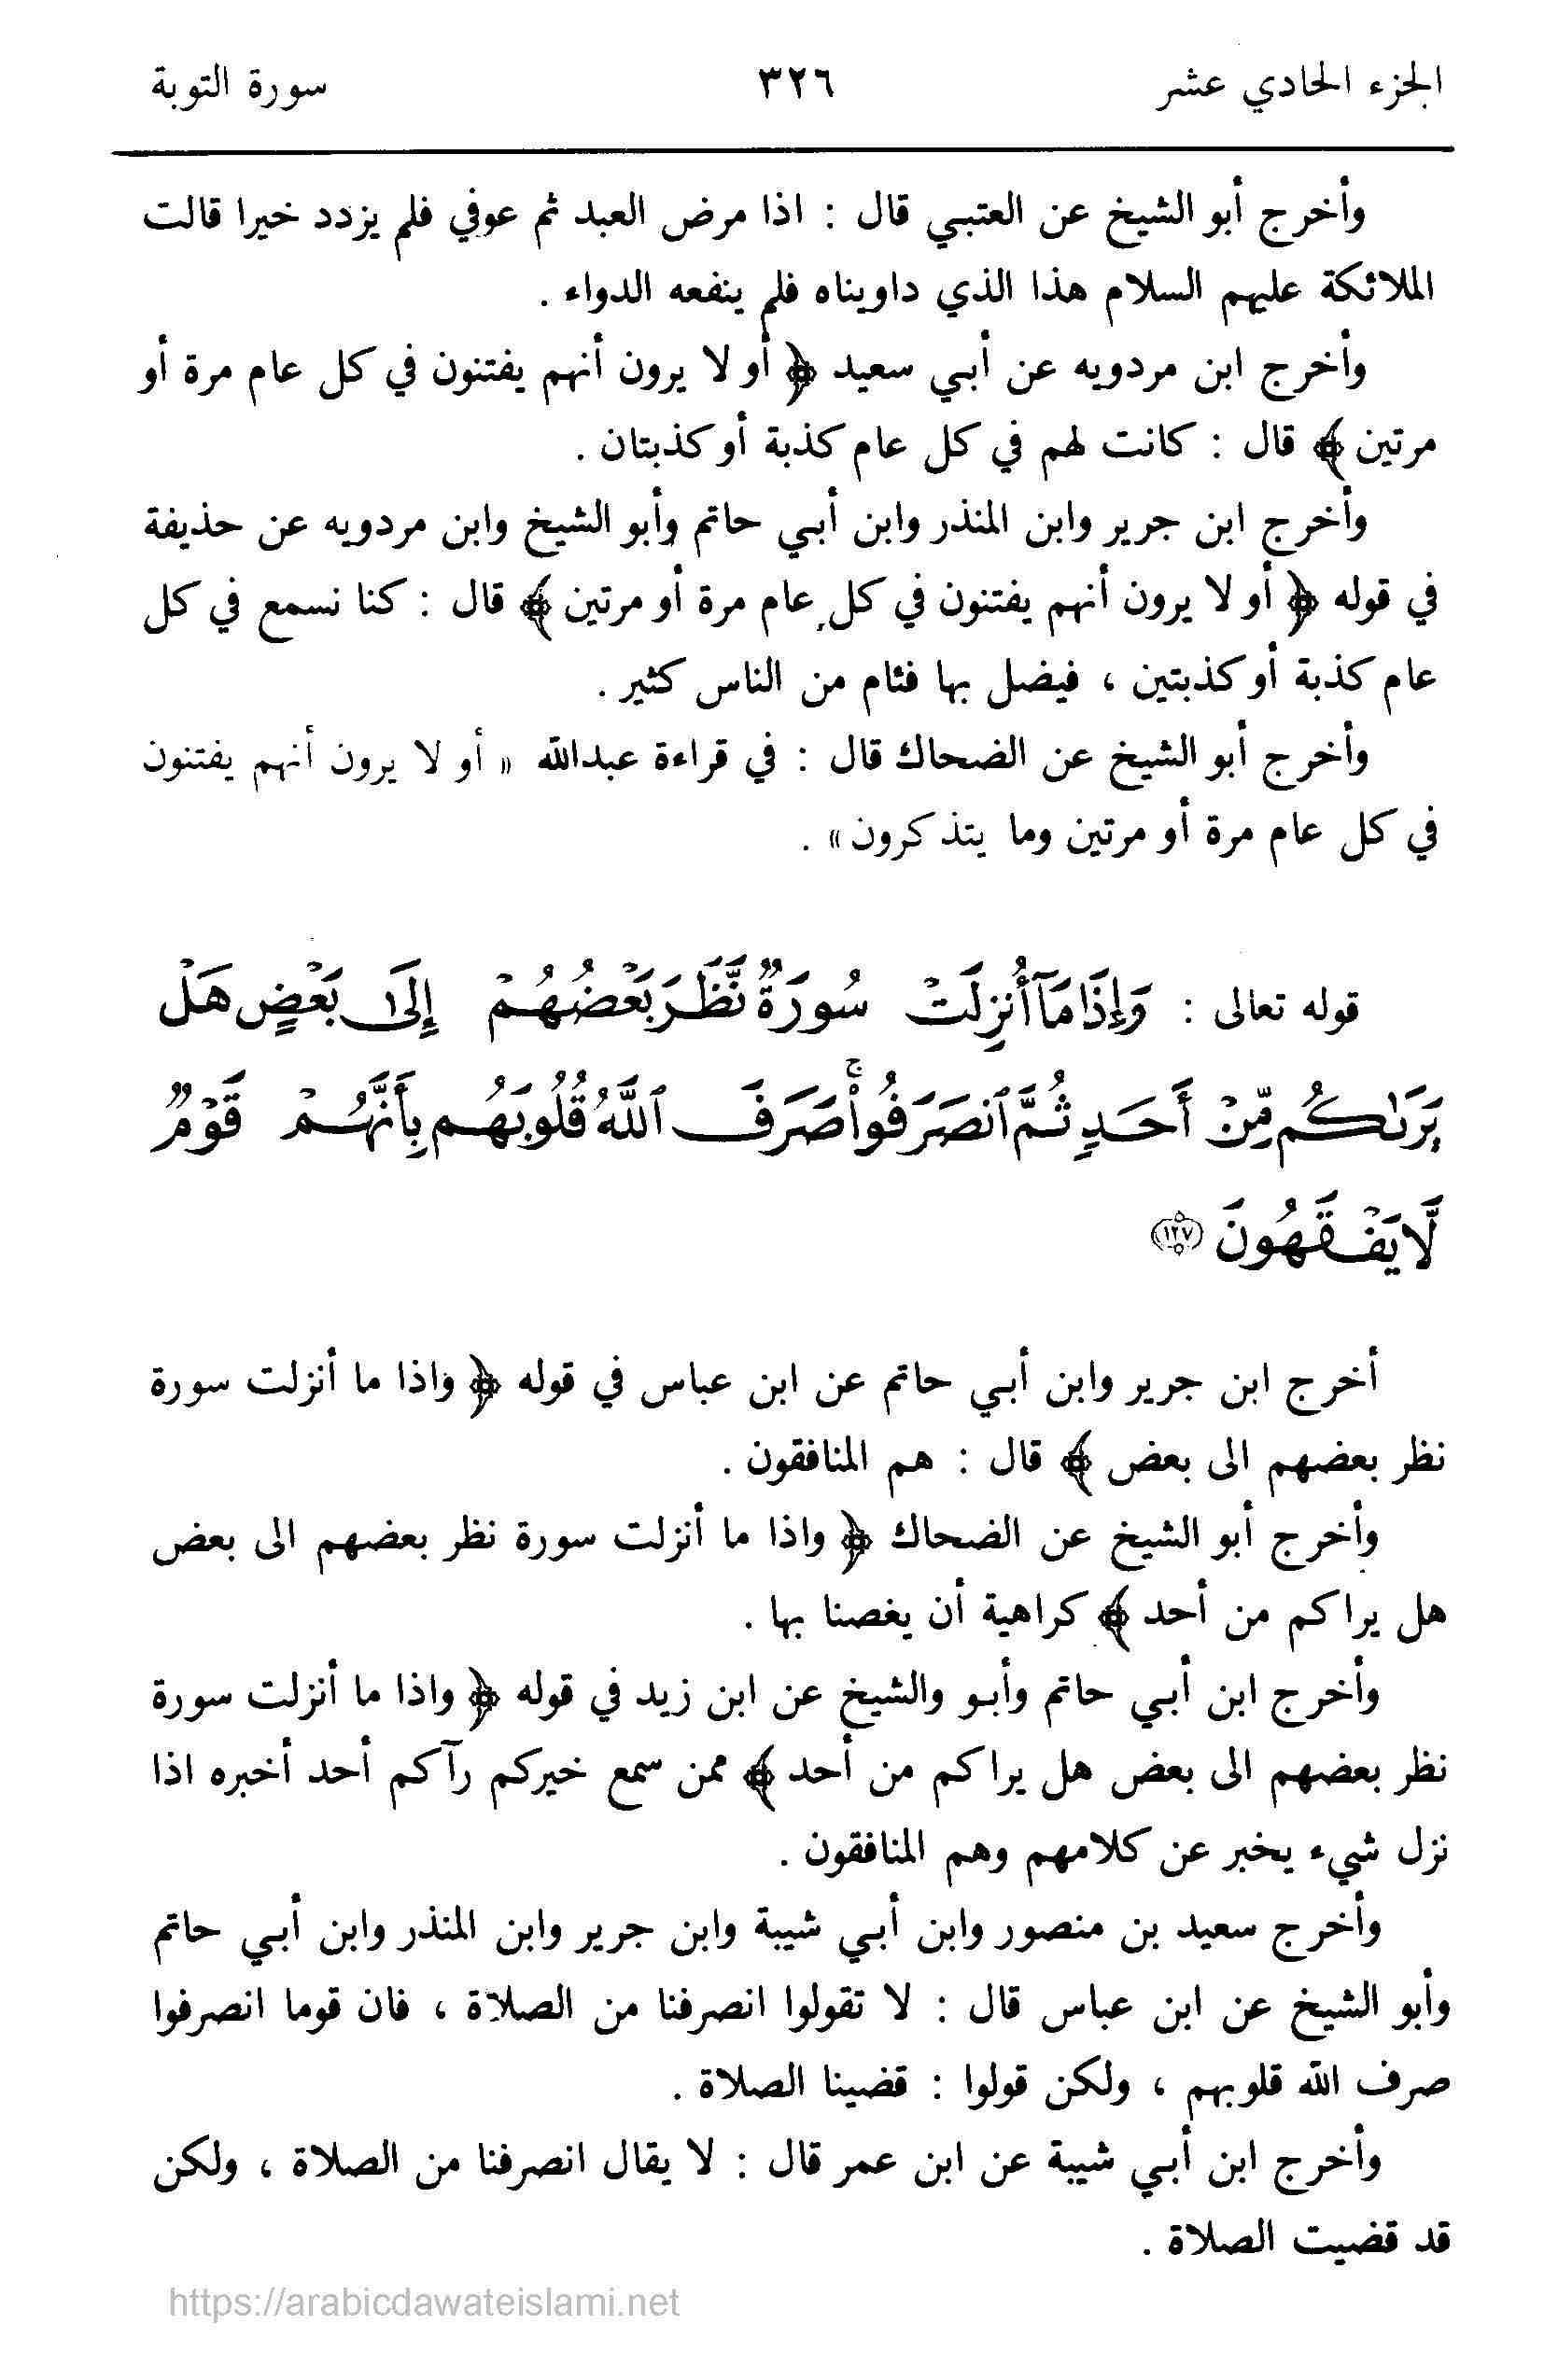 الجزء الحادي عشر ٣٢٦ سورة التوبة
وأخرج أبو الشيخ عن العتبي قال : اذا مرض العبد ثم عوفي فلم يزدد خيرا قالت
الملائكة عليهم السلام هذا الذي داويناه فلم ينفعه الدواء .
وأخرج ابن مردويه عن أبي سعيد ﴿ أو لا يرون أنهم يفتنون في كل عام مرة أو
مرتين ﴾ قال : كانت لهم في كل عام كذبة أو كذبتان .
وأخرج ابن جرير وابن المنذر وابن أبي حاتم وأبو الشيخ وابن مردويه عن حذيفة
في قوله ﴿ أو لا يرون أنهم يفتنون في كل عام مرة أو مرتين ﴾ قال : كنا نسمع في كل
عام كذبة أو كذبتين ، فيضل بها فئام من الناس كثير .
وأخرج أبو الشيخ عن الضحاك قال : في قراءة عبدالله « أو لا يرون أنهم يفتنون
في كل عام مرة أو مرتين وما يتذكرون» .
قوله تعالى : وَإِذَا مَآ أُنزِلَتۡ سُورَةٞ نَّظَرَ بَعۡضُهُمۡ إِلَىٰ بَعۡضٍ هَلۡ
يَرَىٰكُم مِّنۡ أَحَدٖ ثُمَّ ٱنصَرَفُواْۚ صَرَفَ ٱللَّهُ قُلُوبَهُم بِأَنَّهُمۡ قَوۡمٞ
لَّا يَفۡقَهُونَ ﴿١٢٧﴾
أخرج ابن جرير وابن أبي حاتم عن ابن عباس في قوله ﴿ واذا ما أنزلت سورة
نظر بعضهم الى بعض ﴾ قال : هم المنافقون .
وأخرج أبو الشيخ عن الضحاك ﴿ واذا ما أنزلت سورة نظر بعضهم الى بعض
هل يراكم من أحد ﴾ كراهية أن يغصنا بها .
وأخرج ابن أبي حاتم وأبو والشيخ عن ابن زيد في قوله ﴿ واذا ما أنزلت سورة
نظر بعضهم الى بعض هل يراكم من أحد ﴾ ممن سمع خيركم رآكم أحد أخبره اذا
نزل شيء يخبر عن كلامهم وهم المنافقون .
وأخرج سعيد بن منصور وابن أبي شيبة وابن جرير وابن المنذر وابن أبي حاتم
وأبو الشيخ عن ابن عباس قال : لا تقولوا انصرفنا من الصلاة ، فان قوما انصرفوا
صرف الله قلوبهم ، ولكن قولوا : قضينا الصلاة .
وأخرج ابن أبي شيبة عن ابن عمر قال : لا يقال انصرفنا من الصلاة ، ولكن
قد قضيت الصلاة .
https://arabicdawateislami.net